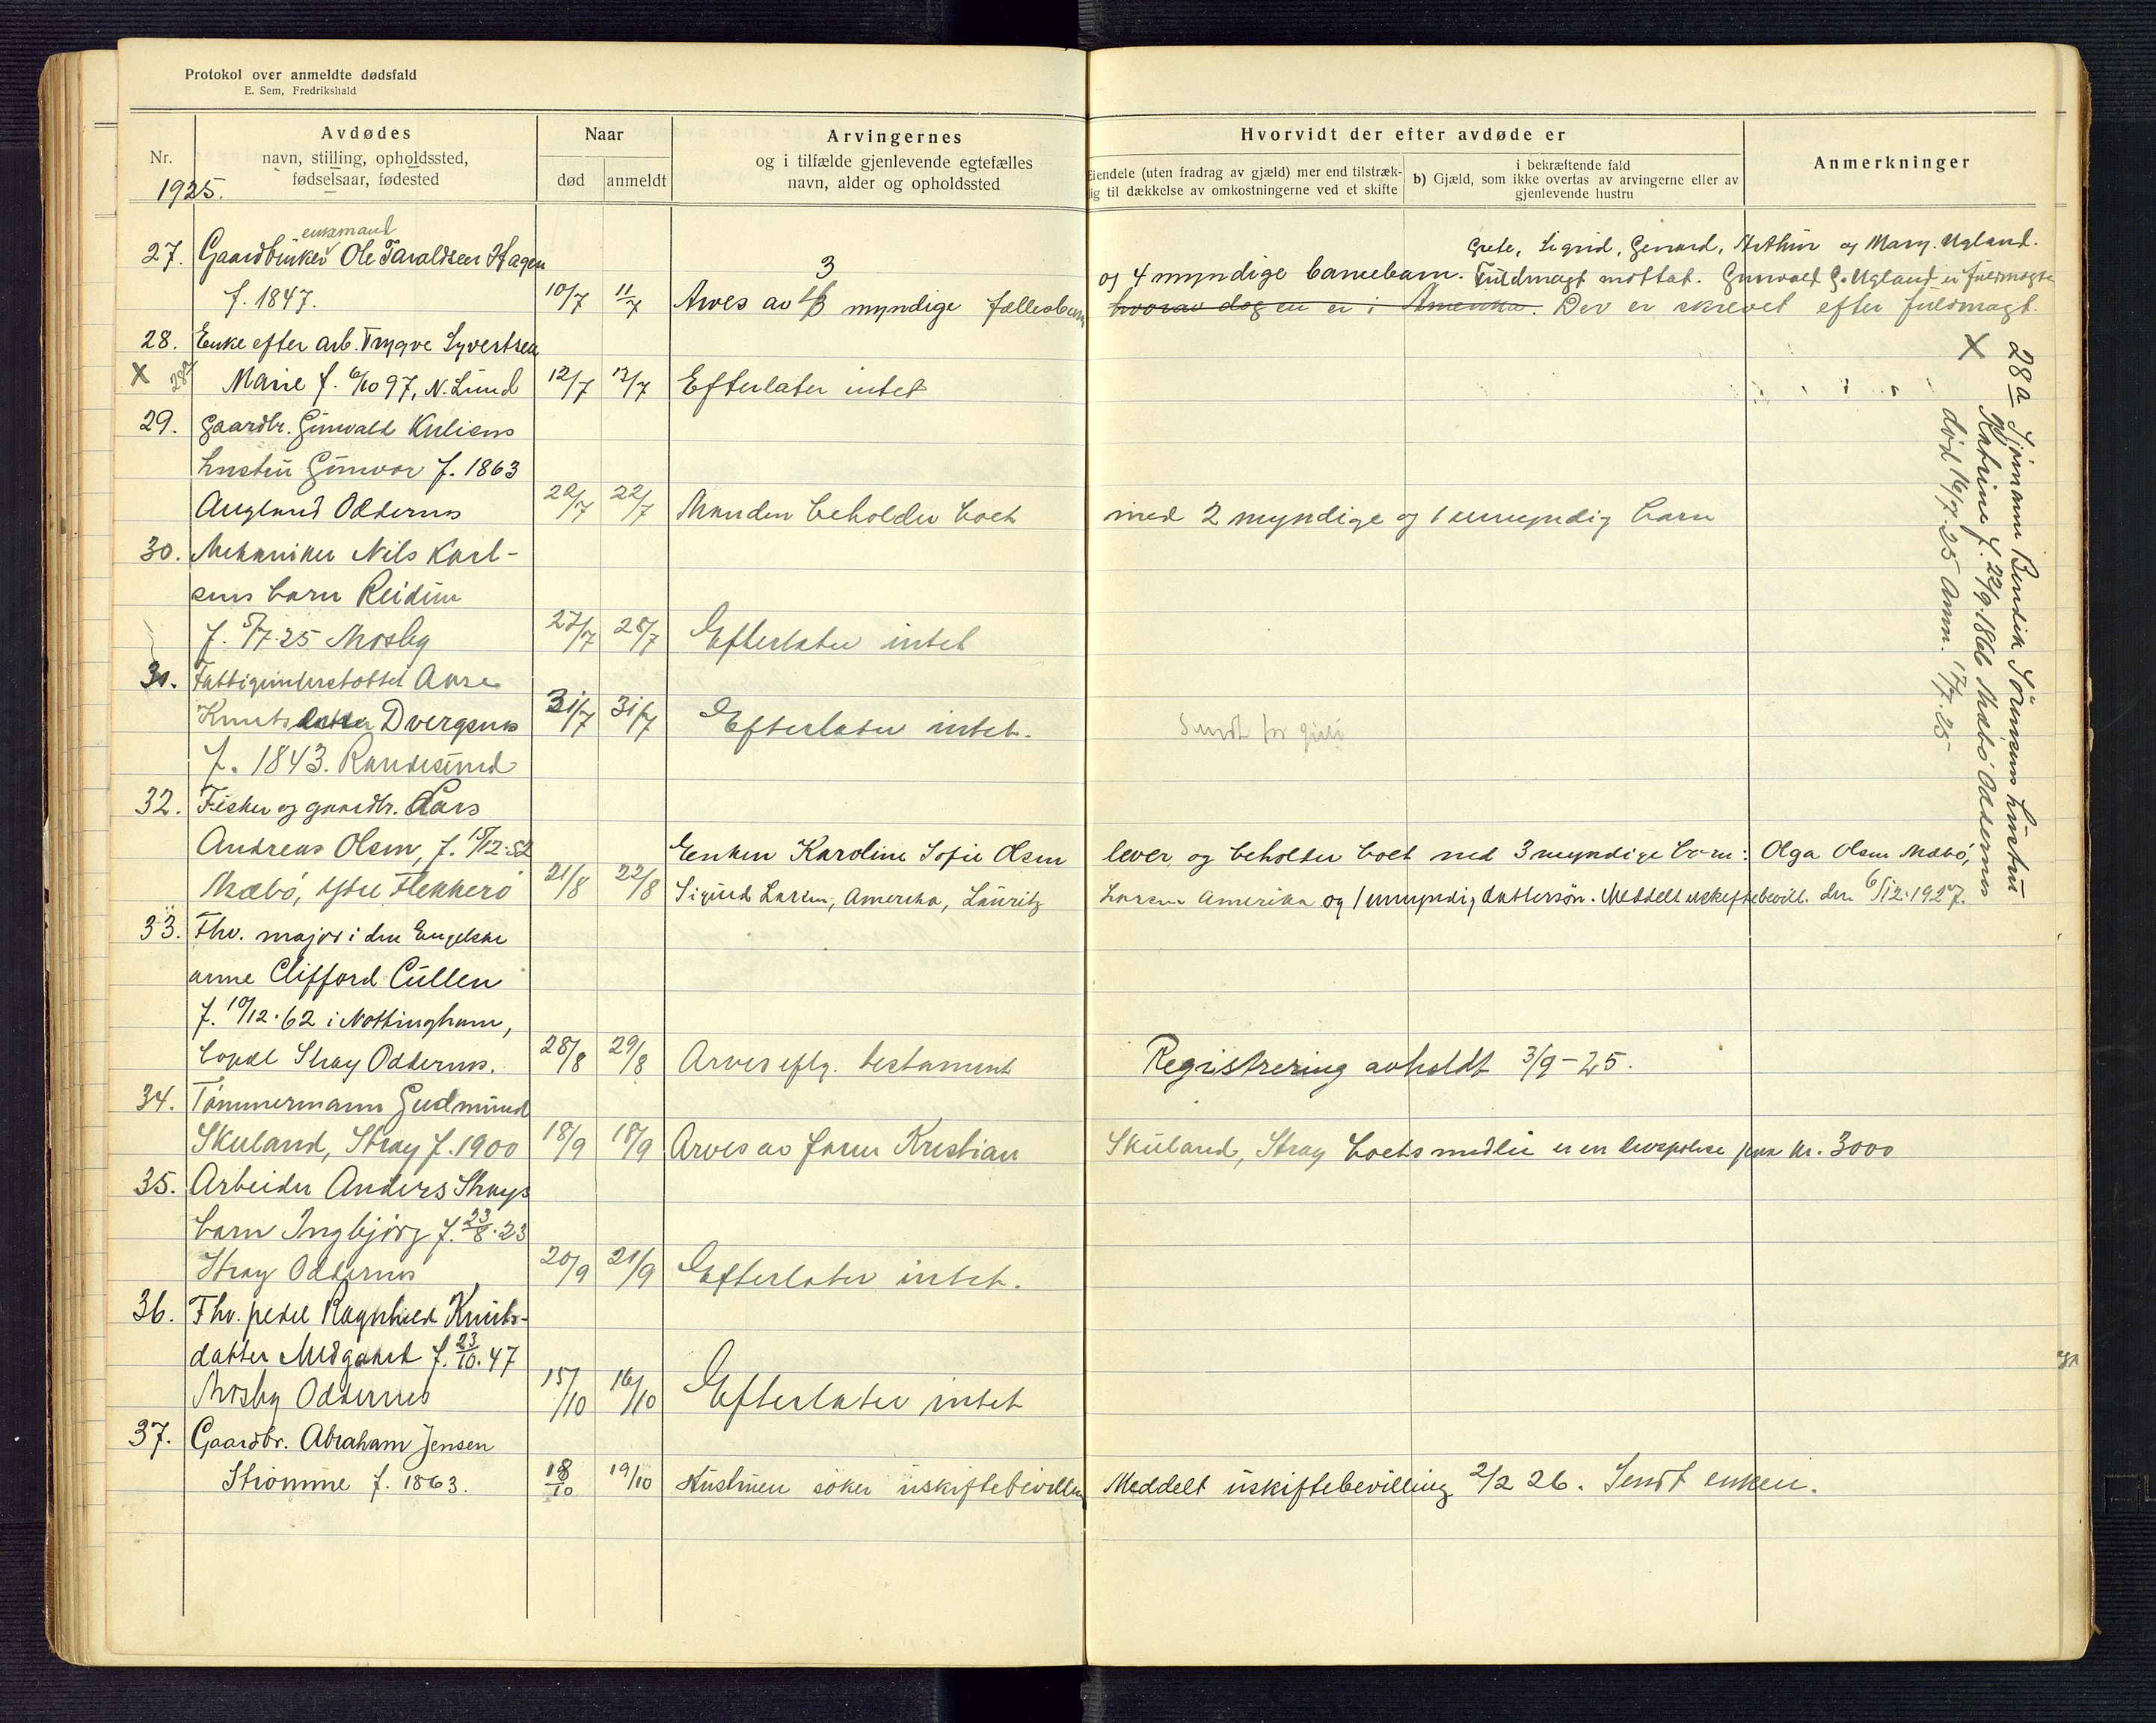 Protokol over anmeldte dødsfald
E. Sem, Fredrikshald
Nr.
1925.
Avdødes
navn, stilling, opholdssted,
fødselsaar, fødested
Naar
død
anmeldt
Arvingernes
og i tilfælde gjenlevende egtefælles
navn, alder og opholdssted
Hvorvidt der efter avdøde er
Eiendele (uten fradrag av gjæld) mer end tilstræk-
lig til dækkelse av omkostningerne ved et skifte
i bekræftende fald
b) Gjæld, som ikke overtas av arvingerne eller av
gjenlevende hustru
Anmerkninger
enkemand
27. Gaardbruker Ole Taraldsen Hagen
f. 1847. 10/7 11/7 Arves av 3 myndige fællesbarn
Grete, Sigrid, Gerard, Arthur og Mary Ugland.
og 4 myndige barnebarn. Fuldmagt mottat. Gunvald G. Ugland er fuldmægtig
hvorav dog en er i Amerika. Der er skrevet efter fuldmagt.
28. Enke efter arb. Trygve Syvertsen
X Marie f. 6/10 97, N. Lund 12/7 13/7 Efterlater intet
X 28a Sjömann Bendik Sörensens hustru
Katrine f. 22/9.1866 Mæbö Oddernes
död 16/7.25 Anm. 17/7.25
29. Gaardbr. Gunvald Kuliens
hustru Gunvor f. 1863
Augland Oddernes 20/7 22/7 Manden beholder boet med 2 myndige og 1 umyndig barn
30. Mekaniker Nils Karl-
sens barn Reidun
f. 5/7.25 Mosby 27/7 28/7 Efterlater intet
31. Fattigunderstøttet Aase
Knutsdatter Dvergsnes 31/7 31/7 Efterlater intet.
f. 1843. Randesund
32. Fisker og gaardbr. Lars
Andreas Olsen, f. 15/12.52 Enken Karoline Sofie Olsen lever og beholder boet med 3 myndige barn: Olga Olsen Mæbö,
Mæbö, ytre Flekkerö 21/8 22/8 Sigurd Larsen, Amerika, Lauritz Larsen Amerika og 1 umyndig dattersön. Meddelt uskiftebevill. den 6/12.1927.
33. Fhv. major i den Engelske
arme Clifford Cullen
f. 10/12.62 i Nottingham,
bopæl Stray Oddernes. 28/8 29/8 Arves eflg. testament Registrering avholdt 3/9-25.
34. Tömmermann Gudmund
Skuland, Stray f. 1900 18/9 18/9 Arves av faren Kristian Skuland, Stray Boets midler er en livspolise paa kr. 3000
35. Arbeider Anders Strays
barn Ingbjörg f. 23/8.23
Stray Oddernes 20/9 21/9 Efterlater intet.
36. Fhv. pedel Ragnhild Knuts-
datter Midgaard f. 23/10.47
Mosby Oddernes 15/10 16/10 Efterlater intet
37. Gaardbr. Abraham Jensen
Strömme f. 1863. 18/10 19/10 Hustruen söker uskiftebevilling Meddelt uskiftebevilling 2/2 26. Sendt enken.